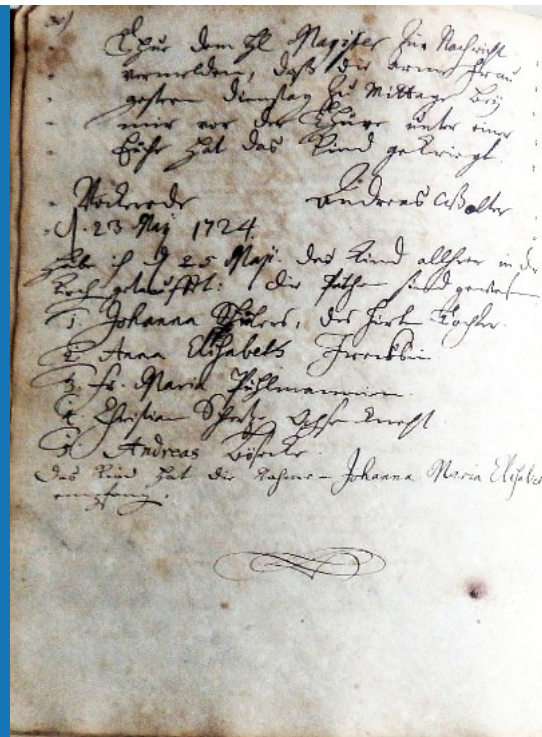 Thue dem HL Magister zur Nachricht
vermelden, daß die arme Frau
gestern Dienstag zu Mittage bey
mir vor der Thüre unter einer
Eiche hat das Kind gekriegt.
Andreas
d. 23 Maj 1724
Habe ich d 25 Maji. das Kind allhier in der
Kirch getaufft: die Pathen sind gewesen
1. Johanna des Hirten Tochter.
2. Anna Elisabeth
3. Fr. Maria Pühlmannin
4. Christian Ochsen Knecht
5. Andreas
das Kind hat die Nahmen Johanna Maria Elisabeth
empfang.